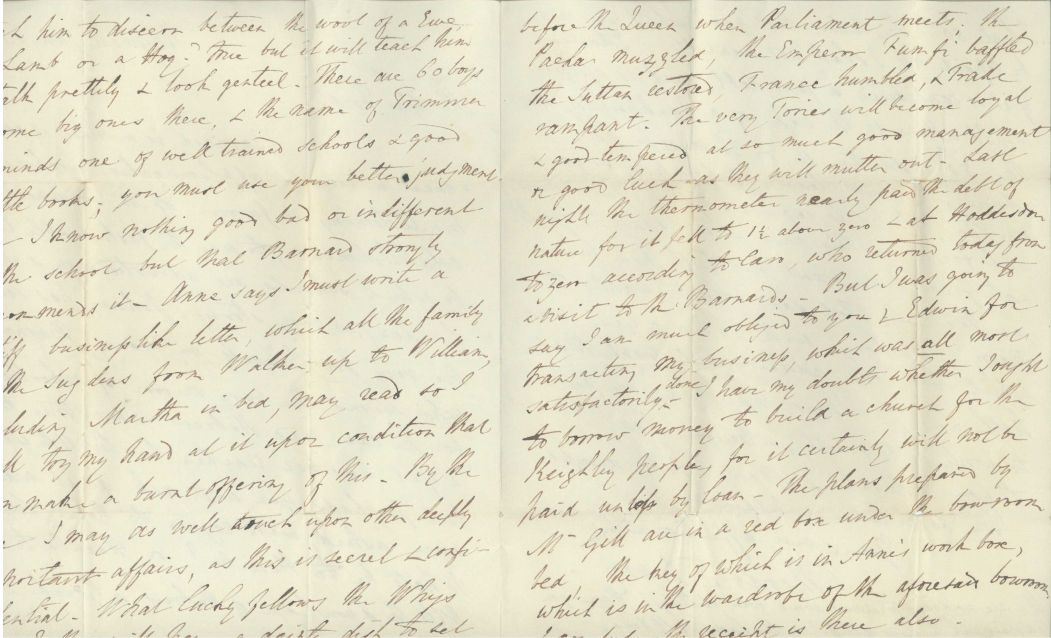 h him to discern between the wool of a Ewe
Lamb or a Hog? True but it will teach him
talk prettily & look genteel. There are 60 boys
some big ones there, & the name of Trimmer
minds one of well trained schools & good
ttle books; you must use your better judgment.
- I know nothing good bad or indifferent
the school but that Barnard strongly
mmends it - Anne says I must write a
iff businesslike letter, which all the family
the Sugdens from Walker up to William,
luding Martha in bed, may read so I
ll try my hand at it upon condition that
make a burnt offering of this - By the
I may as well touch upon other deeply
portant affairs, as this is secret & confi-
dential - What lucky fellows the Whigs
a dainty dish to set
before the Queen when Parliament meets; the
Pacha muzzled, the Emperor Fumfi baffled
the Sultan restored, France humbled, & Trade
rampant. The very Tories will become loyal
& good tempered at so much good management
or good luck as they will mutter out - Last
night the thermometer nearly paid the debt of
nature for it fell to 1½ above zero & at Hoddesdon
to zero according to Caro, who returned today from
a visit to the Barnards - But I was going to
say I am much obliged to you & Edwin for
transacting my business, which was all most
satisfactorily done - I have my doubts whether I ought
to borrow money to build a church for the
Keighley people, for it certainly will not be
paid unless by loan - The plans prepared by
Mr Gill are in a red box under the bowroom
bed, the key of which is in Anne's work box,
which is in the wardrobe of the aforesaid bowroom,
the receipt is there also -